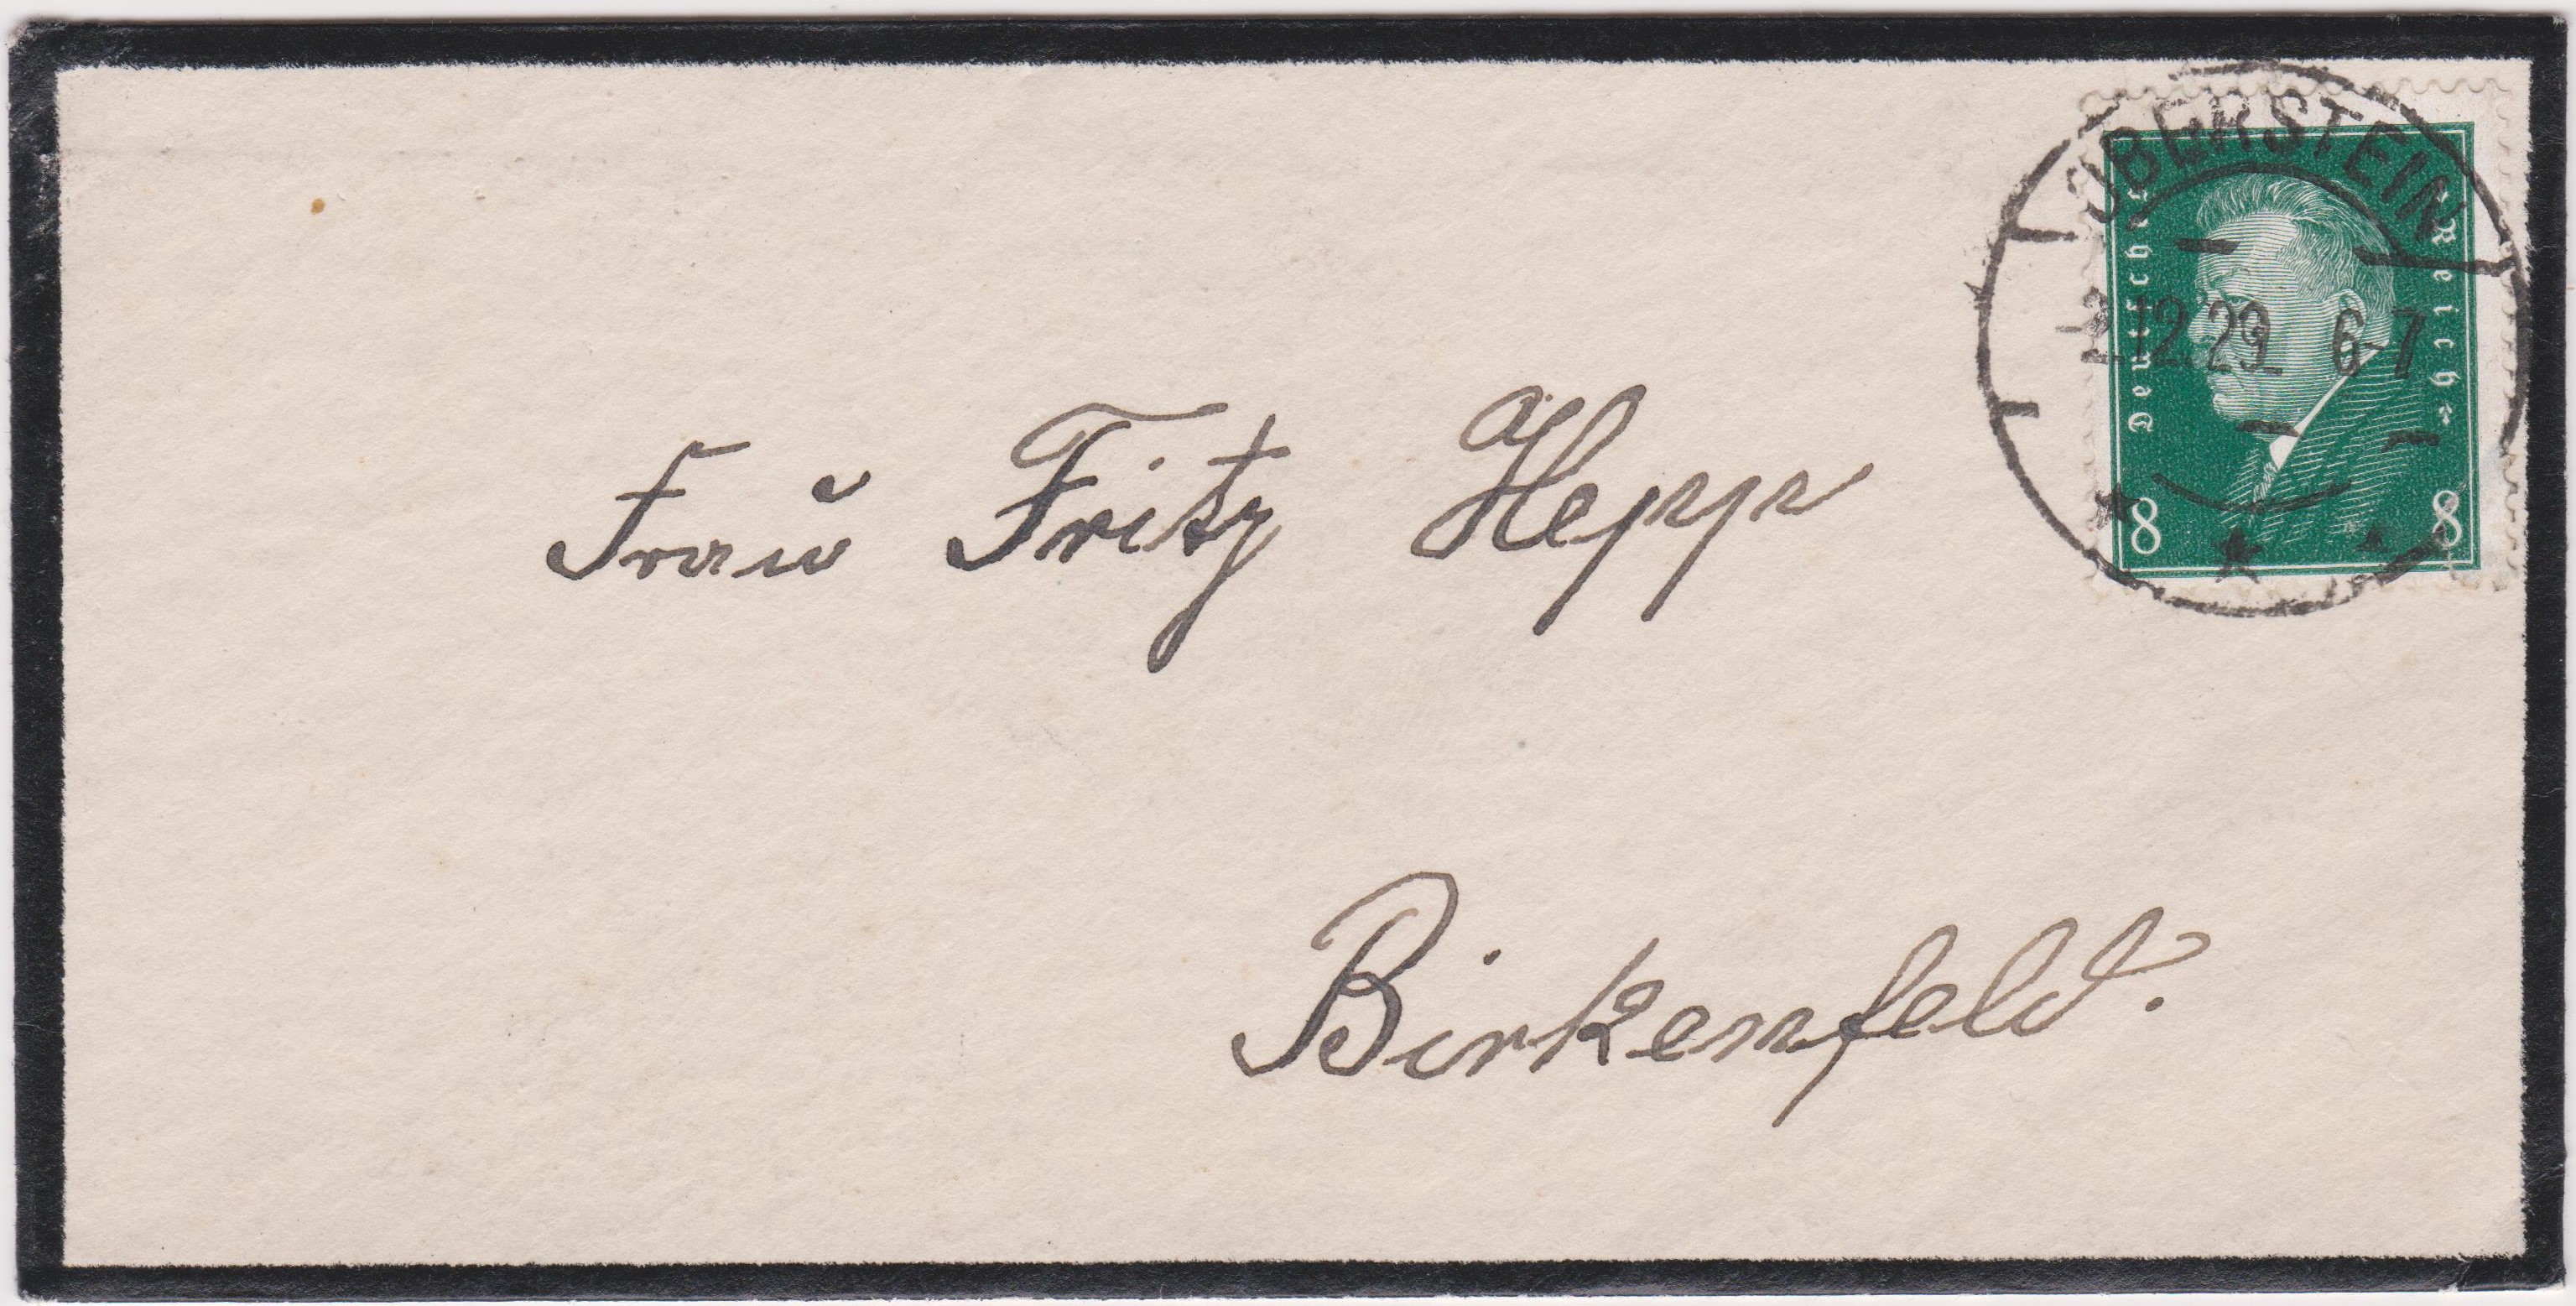 OBERSTEIN
2.12.29. 6-7
Deutsches Reich
8 8
Frau Fritz Hepp
Birkenfeld.